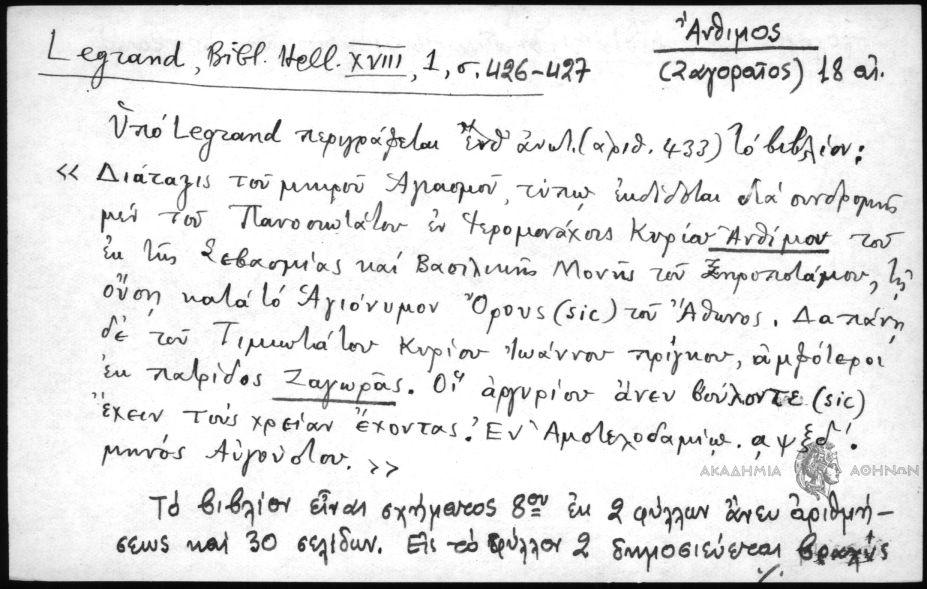 Ἄνθιμος
Legrand, Bibl. Hell. XVIII, 1, σ. 426-427
(Ζαγοραῖος) 18 αἰ.
Ὑπό Legrand περιγράφεται ἔνθ' ἀνωτ. (ἀριθ. 433) τό βιβλίον:
<< Διάταξις τοῦ μικροῦ Ἁγιασμοῦ, τύπῳ ἐκδίδοται διά συνδρομῆς
μέν τοῦ Πανοσιωτάτου ἐν Ἱερομονάχοις Κυρίου Ἀνθίμου τοῦ
ἐκ τῆς Σεβασμίας καί Βασιλικῆς Μονῆς τοῦ Ξηροποτάμου, τῇ
οὔσῃ κατά τό Ἁγιόνυμον Ὄρους (sic) τοῦ Ἄθωνος. Δαπάνῃ
δέ τοῦ Τιμιωτάτου Κυρίου Ἰωάννου πρίγκου, ἀμφότεροι
ἐκ πατρίδος Ζαγωρᾶς. Οἵ ἀργυρίου ἄνευ βούλοντε (sic)
ἔχειν τούς χρείαν ἔχοντας. Ἐν Ἀμστελοδαμίῳ. αψξδ'.
μηνός Αὐγούστου. >>
ΑΚΑΔΗΜΙΑ ΑΘΗΝΩΝ
Τό βιβλίον εἶναι σχήματος 8ου ἐκ 2 φύλλων ἄνευ ἀριθμή-
σεως καί 30 σελίδων. Εἰς τό φύλλον 2 δημοσιεύεται βραχύς
./.